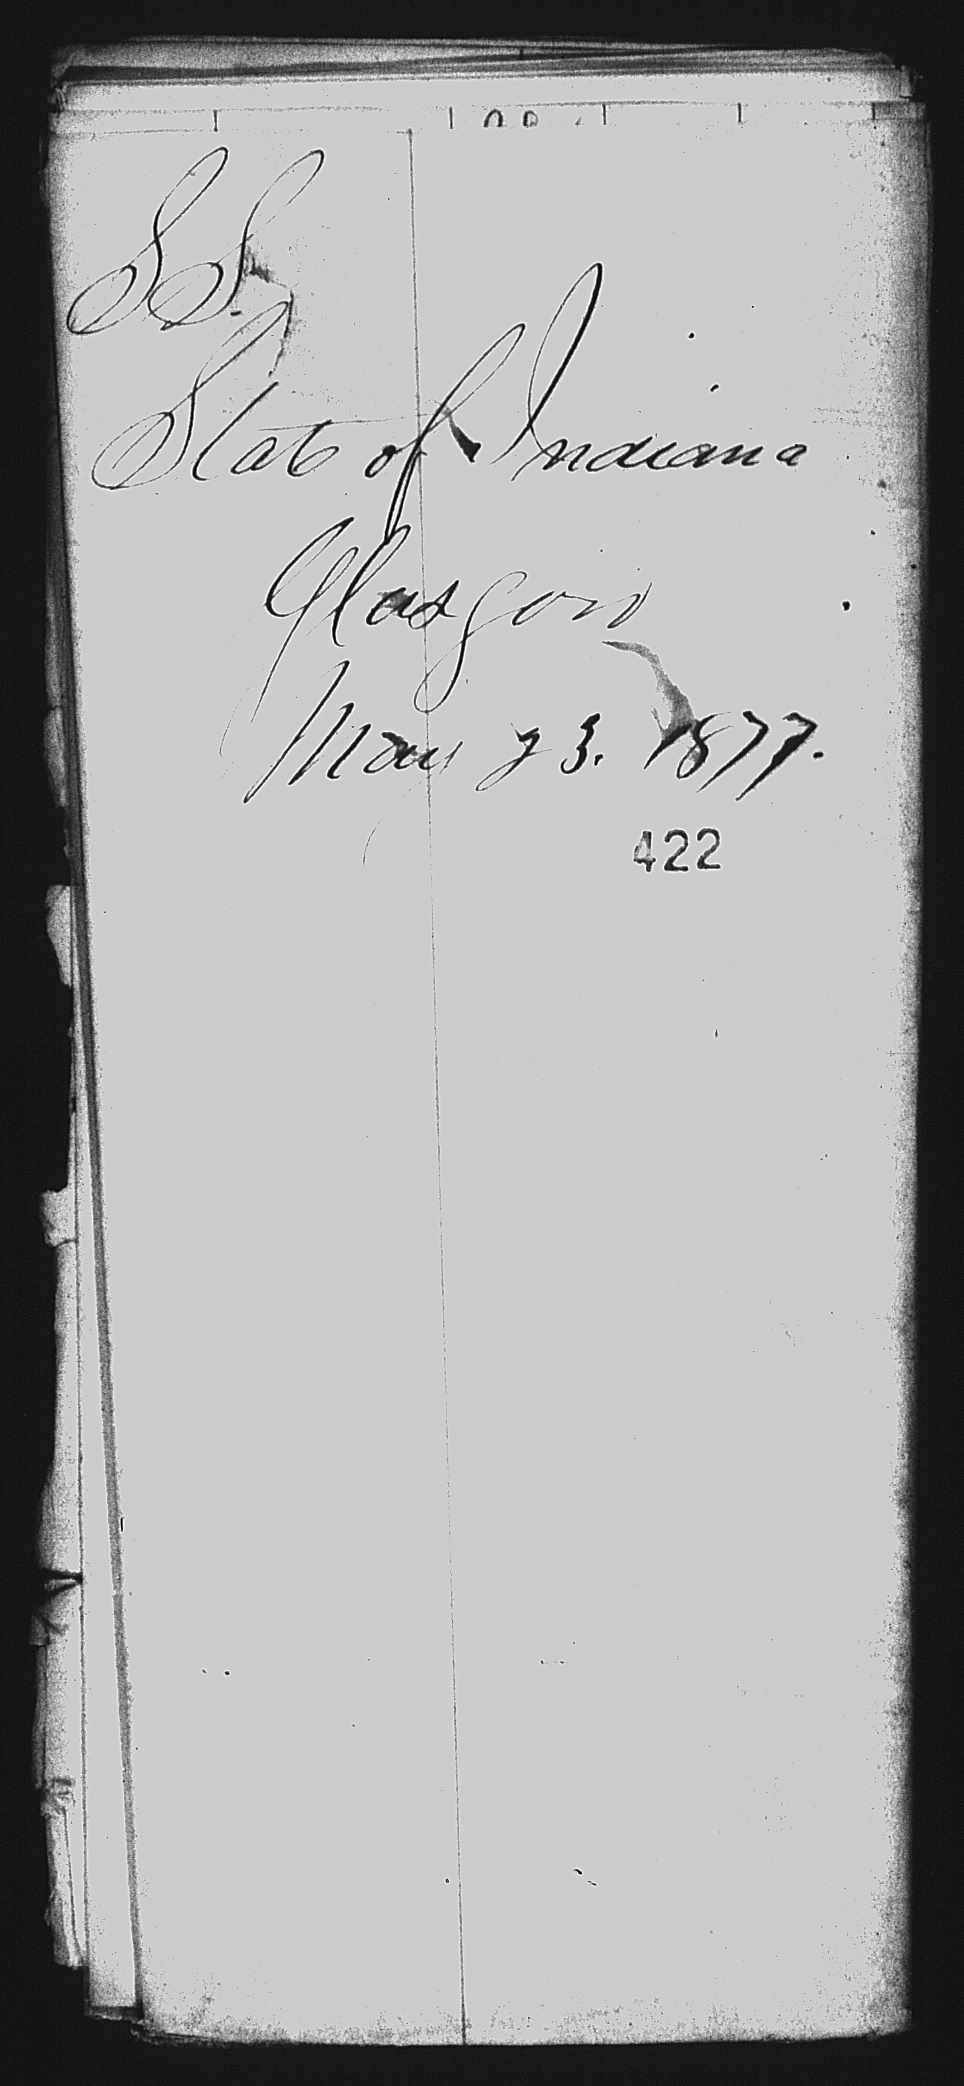 SS.
State of Indiana
Glasgow
May 23. 1877.
422